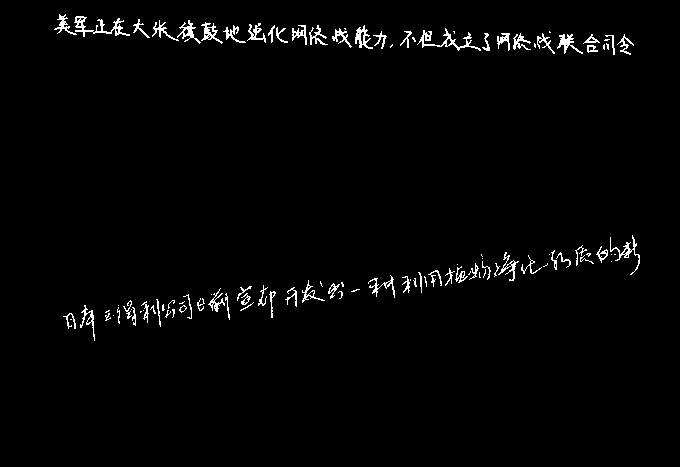 美军正在大张旗鼓地强化网络战能力,不但成立了网络战联合司令
日本三得利公司日前宣布开发出一种利用植物净化水质的新